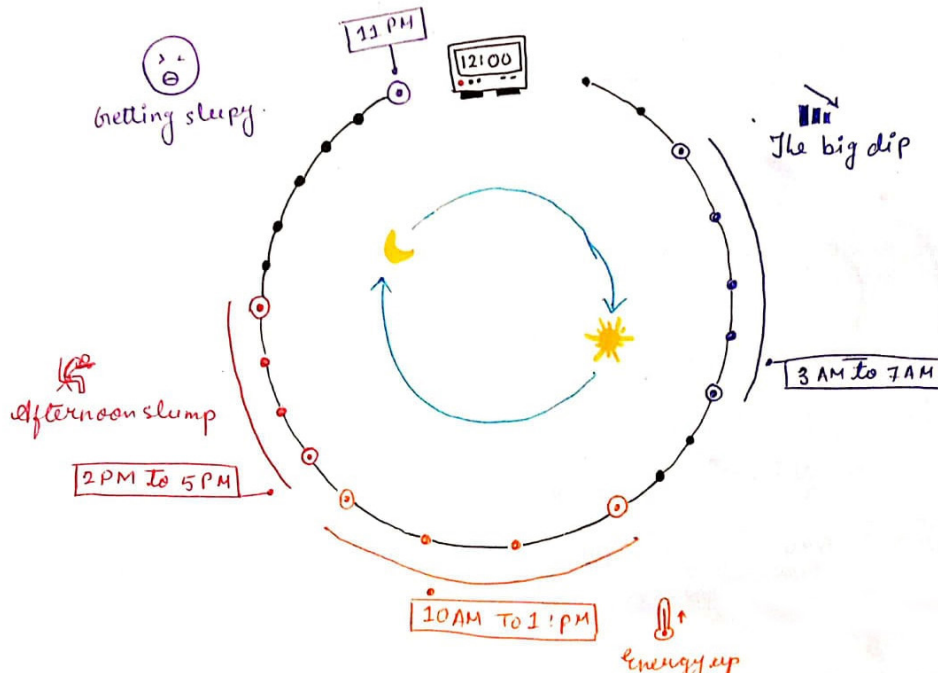 11 PM
12:00
Getting sleepy.
The big dip
3 AM to 7 AM
Afternoon slump
2 PM to 5 PM
10 AM TO 1:PM
Energy up